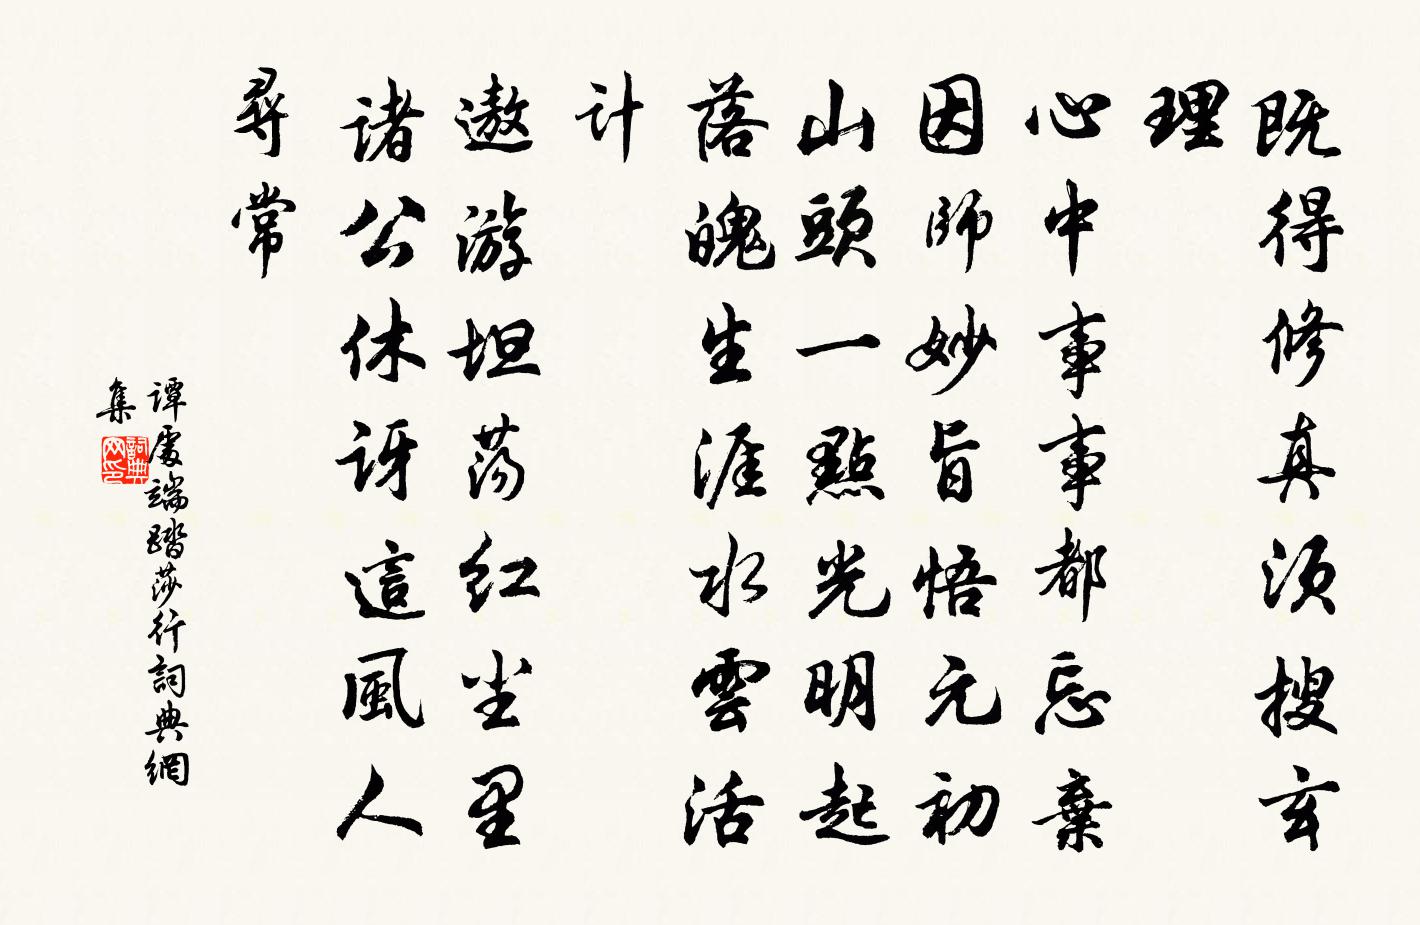 既得修真须搜玄
理
心中事事都忘棄
因师妙旨悟元初
山頭一點光明起
落魄生涯水雲活
计
遨游坦荡红尘里
诸公休讶這風人
尋常
谭處端踏莎行詞典網
集
詞典
网印